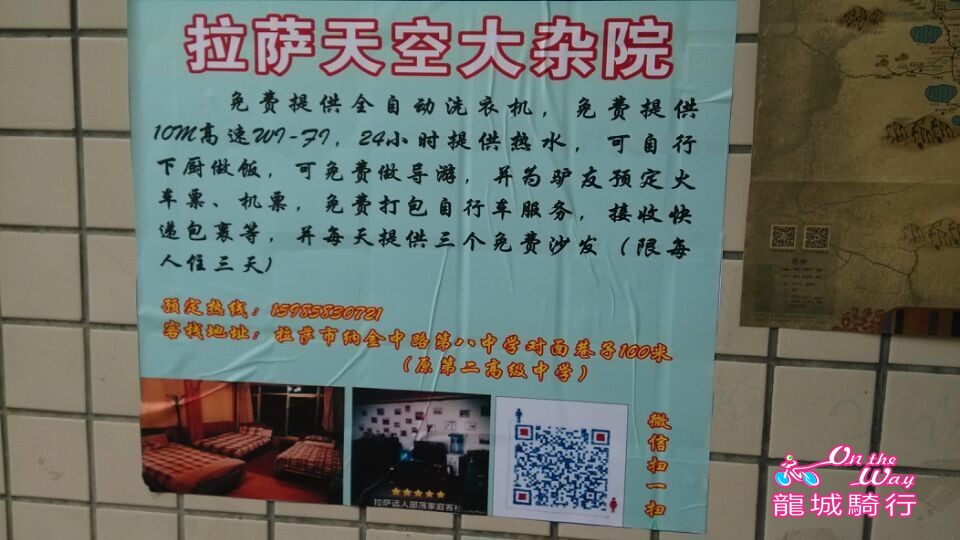 拉萨天空大杂院
免费提供全自动洗衣机，免费提供
10M高速WI-FI，24小时提供热水，可自行
下厨做饭，可免费做导游，并为驴友预定火
车票、机票，免费打包自行车服务，接收快
递包裹等，并每天提供三个免费沙发（限每
人住三天）
预定热线：15985830721
客栈地址：拉萨市纳金中路第八中学对面巷子100米
（原第二高级中学）
微信扫一扫
拉萨远人部落家庭客栈
On the
Way
龍城騎行